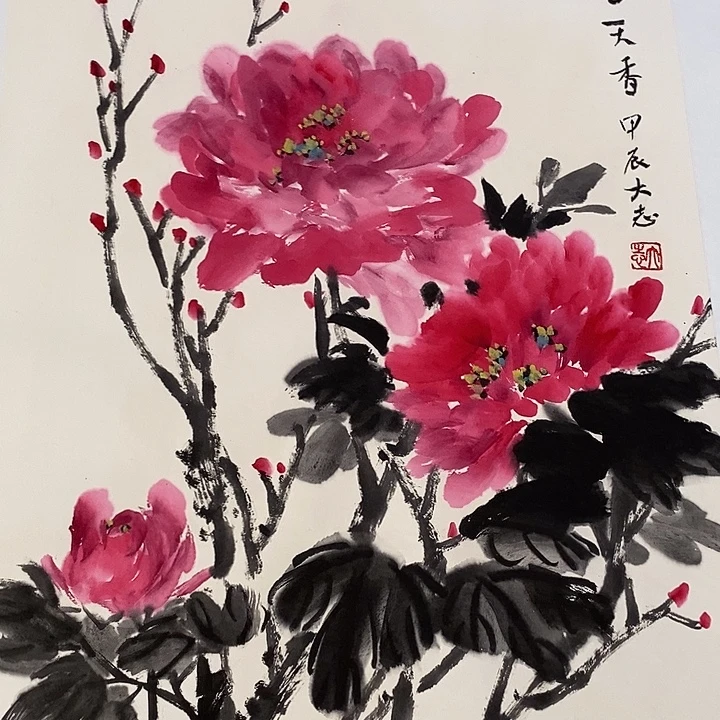 天香
甲辰大志